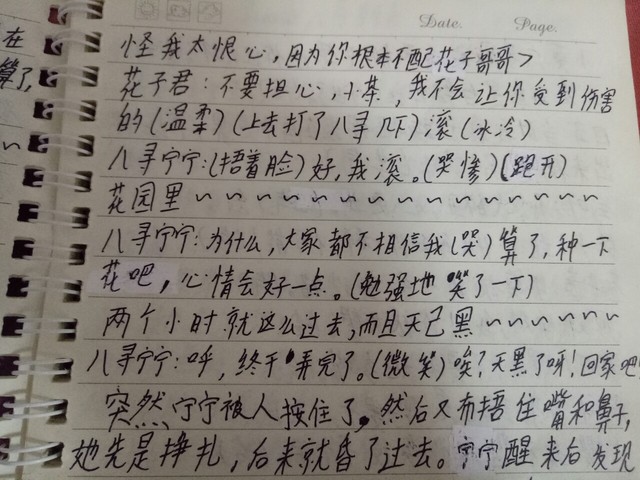 Date.
Page.
在
算了,
怪我太恨心，因为你根本不配花子哥哥>
花子君：不要担心，小茶，我不会让你受到伤害
的(温柔)(上去打了八寻几下)滚(冰冷)
八寻宁宁:(捂着脸)好,我滚。(哭惨)(跑开)
花园里~~~~~~~~~~~~~~~
八寻宁宁:为什么,大家都不相信我(哭)算了,种一下
花吧，心情会好一点。(勉强地笑了一下)
两个小时就这么过去,而且天已黑~~~~~
八寻宁宁:呼，终于弄完了。(微笑)唉?天黑了呀!回家吧
突然,宁宁被人按住了。然后又布捂住嘴和鼻子,
她先是挣扎，后来就昏了过去。宁宁醒来后发现